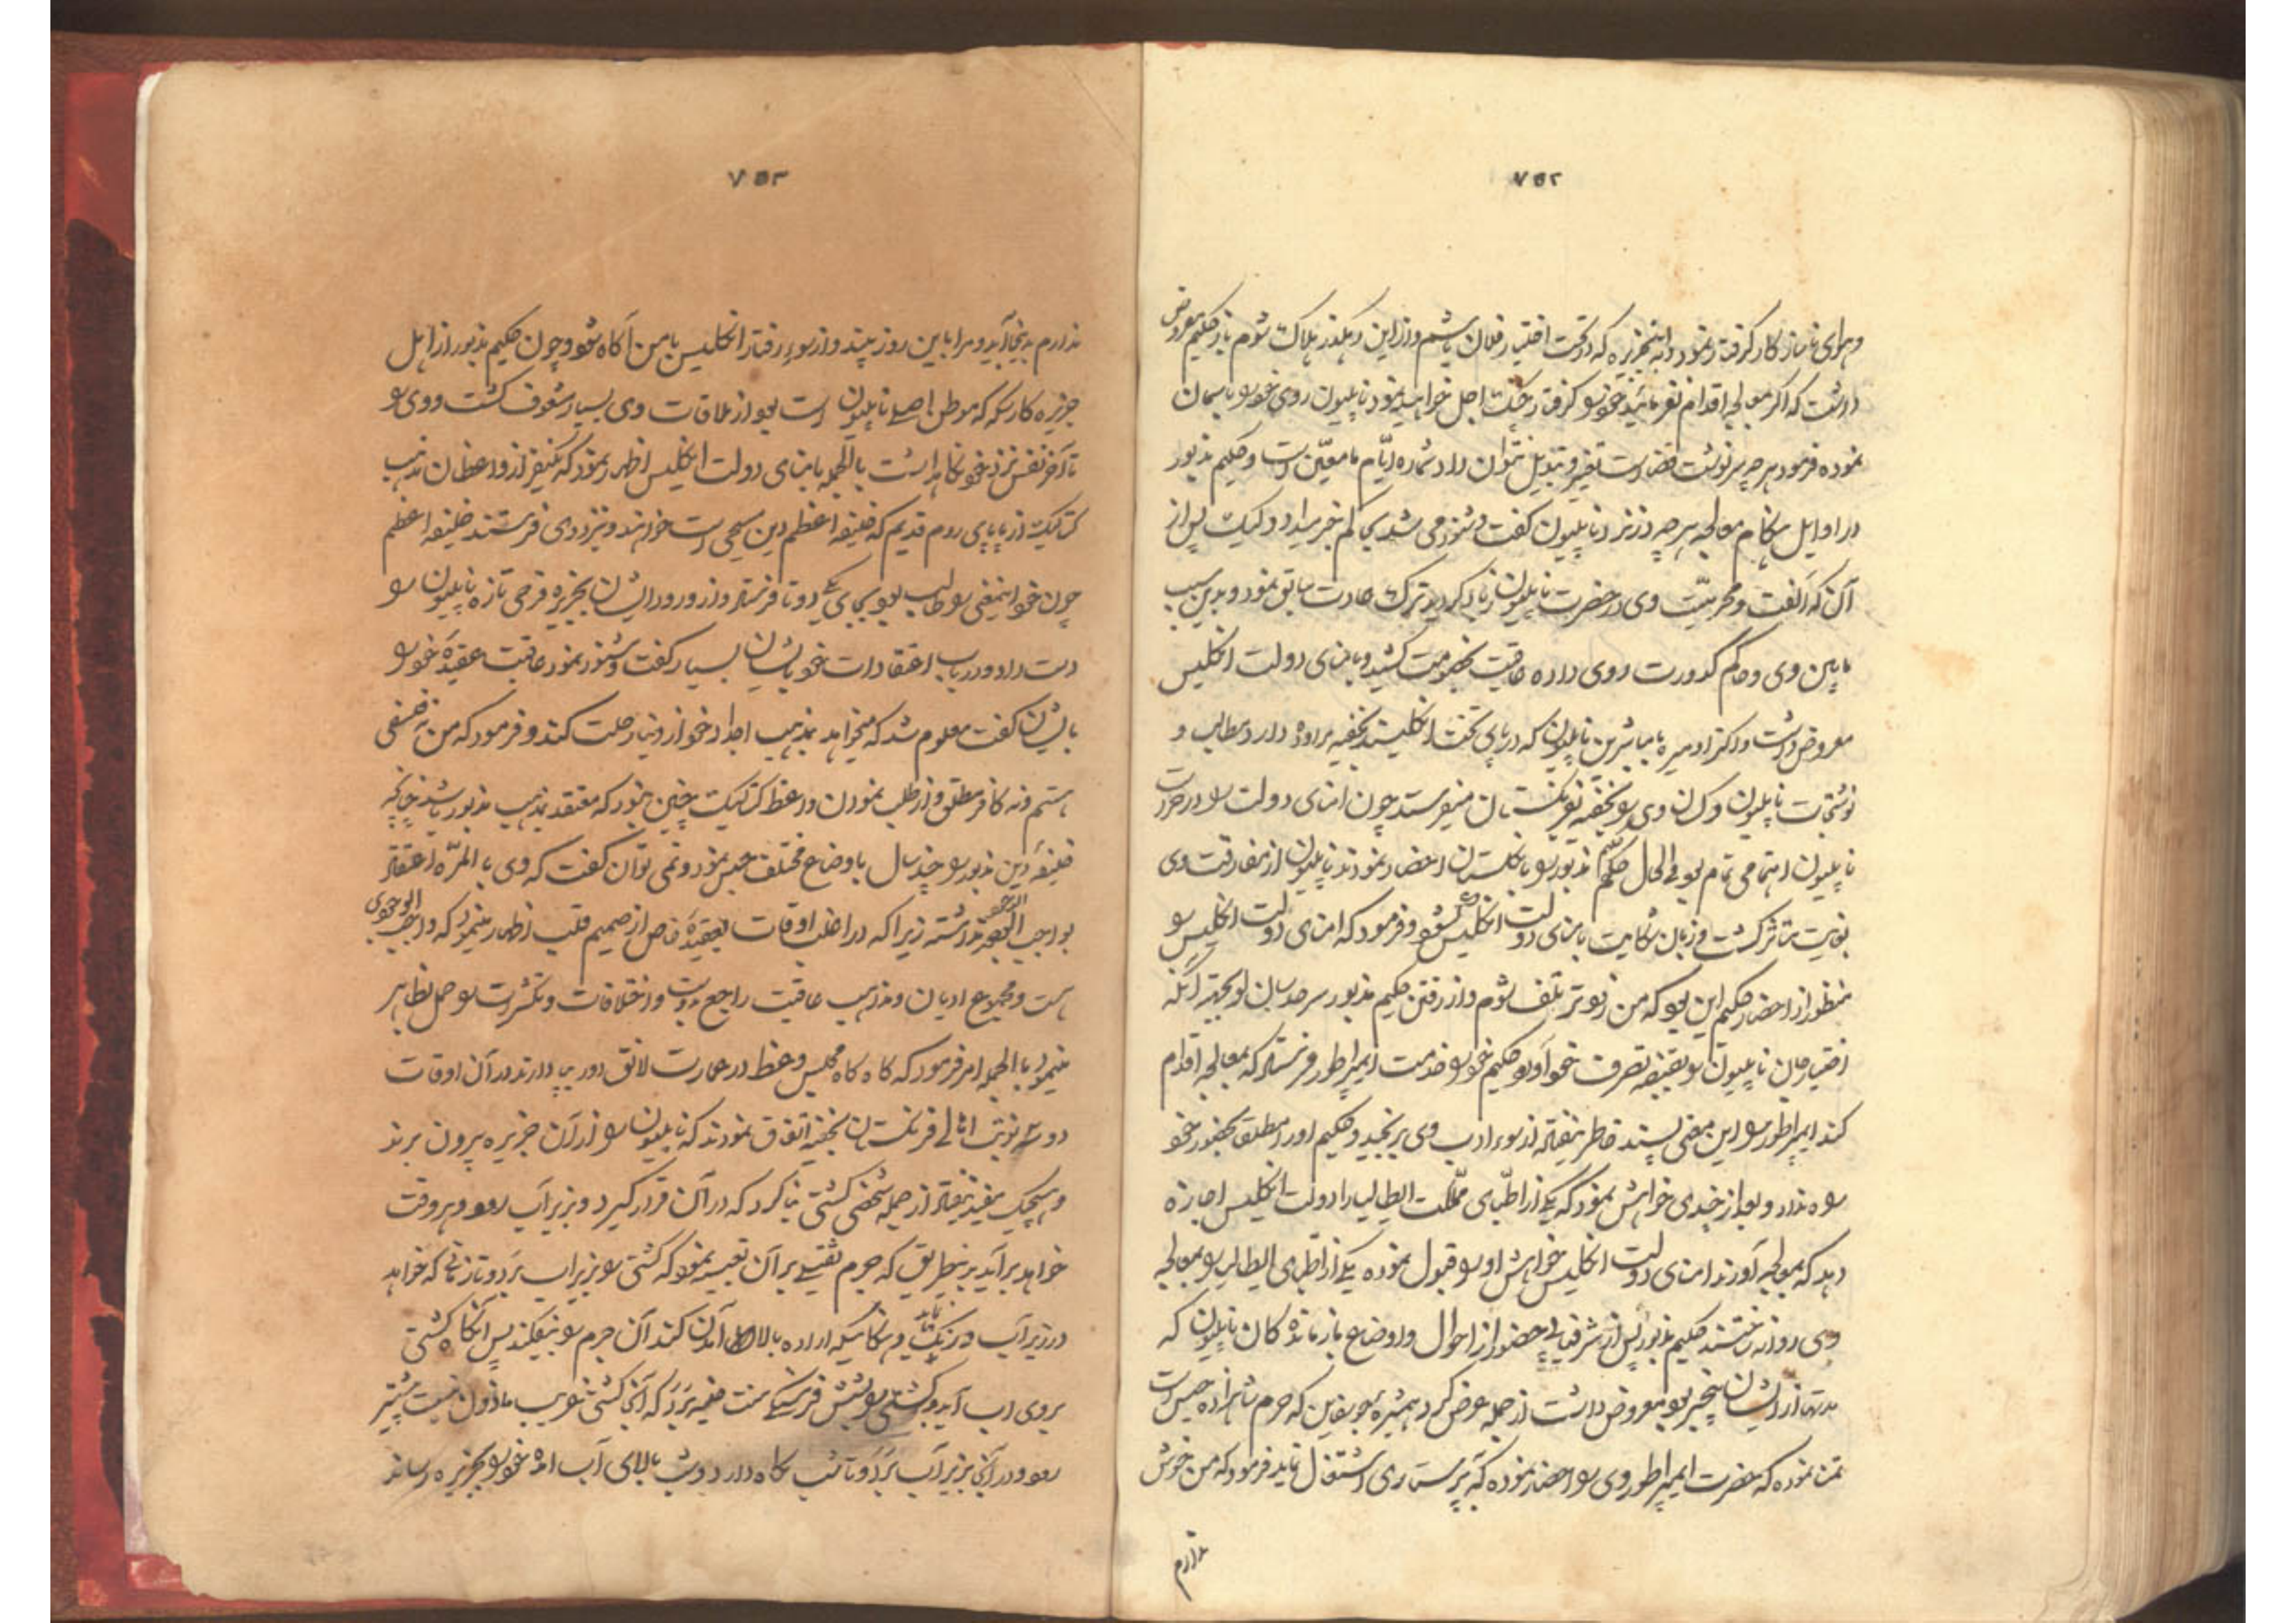 ۷۵۲
و هوای ناساز کار گرفتار نمود و به اینجزیره که در تحت اختیار فلان باشم و از این رهگذر هلاک شوم باز حکیم معروض
داشت که اگر معالجه اقدام نفرمائید خود را گرفتار چنگ اجل خواهید نمود ناپلیون روی خود را باسمان
نموده فرمود هرچه سرنوشت قضا است تغییر و تبدیل نتوان داد شماره ایام ما معین است و حکیم مذبور
در اوایل هنگام معالجه هرچه در نزد ناپلیون گفت و شنود می شد بحاکم خبر میداد و لیک پس از
آن که الفت و محرمیّت وی در حضرت ناپلیون زیاد گردید ترک عادت سابق نمود و بدین سبب
مابین وی و حاکم کدورت روی داده عاقبت بخصومت کشید و بامنای دولت انگلیس
معروض داشت داکتر اومیره با مباشرین ناپلیون که در پای تخت انگلیسند بخفیه مراوده دارد و مطالب و
نوشتجات ناپلیون و کسان وی را بخفیه بفرنگستان میفرستد چون امنای دولت را در حراست
ناپلیون اهتمامی تمام بود فی الحال حکیم مذبور را بانگلستان احضار نمودند ناپلیون از مفارقت وی
بغایت متاثر گشت و زبان شکایت بامنای دولت انگلیس گشود و فرمود که امنای دولت انگلیس را
منظور از احضار حکیم این بود که من زودتر تلف شوم و از رفتن حکیم مذبور سر هدسان لو بجهته آنکه
اختیار جان ناپلیون را بقبضه تصرف خود آورد حکیم خود را خدمت ایمپراطور فرستاد که بمعالجه اقدام
کند ایمپراطور را این معنی پسند خاطر نیفتاد از سوء ادب وی برنجید و حکیم او را مطلق بحضور خود
راه نداد و بعد از چندی خواهش نمود که یکی از اطبای مملکت ایطالیا را دولت انگلیس اجازه
دهد که بمعالجه آورند امنای دولت انگلیس خواهش او را قبول نموده یکی از اطبای ایطالیا را بمعالجه
وی روانه داشتند حکیم مذبور پس از شرفیابی حضور از احوال و اوضاع بازماندگان ناپلیون که
مدتها از ایشان بیخبر بود معروض داشت از جمله عرض کرد همشیره بورغاین که حرم شاهزاده جیس است
تمنا نموده که حضرت ایمپراطور وی را احضار نموده که بپرستاری اشتغال نماید فرمود که من خوش
ندارم
۷۵۳
ندارم بدینجا آید و مرا باین روز بیند و از سوء رفتار انگلیس با من آگاه شود و چون حکیم مذبور از اهل
جزیره کارسکه که موطن اصلی ناپلیون است بود از ملاقات وی بسیار مشعوف گشت و وی را
تا آخر نفس نزد خود نگاهداشت بالجمله بامنای دولت انگلیس اظهار نمود که یکنفر از واعظان مذهب
کتالیک از پاپای روم قدیم که خلیفه اعظم دین مسیحی است خواهند و نزد وی فرستند خلیفه اعظم
چون خود اینمعنی را طالب بود بجای یکی دو تا فرستاد و از ورود ایشان بجزیره فرحی تازه ناپلیون را
دست داد و در باب اعتقادات خود با ایشان بسیار گفت و شنود نمود عاقبت عقیده خود را
بایشان گفت معلوم شد که میخواهد بمذهب اجداد خود از دنیا رحلت کند و فرمود که من نه فلسفی
هستم و نه کافر مطلق و از طلب نمودن واعظ کتالیک چنین نمود که معتقد مذهب مذبور باشد چنانکه
خلیفه دین مذبور را چند سال باوضاع مختلف حبس نمود و نمی توان گفت که وی بالمرّه اعتقاد
بواجب الوجود نداشته زیرا که در اغلب اوقات بعقیده خاص از صمیم قلب اظهار مینمود که واجب الوجودی
هست و مجموع ادیان و مذاهب عاقبت راجع بدوست و اختلافات و تکثرات را حمل بظاهر
مینمود بالجمله امر فرمود که گاه گاه مجلس وعظ در عمارت لانق اود برپا دارند در آن اوقات
دو سه نوبت اهالی فرنگستان بخفیه اتفاق نمودند که ناپلیون را از آن جزیره بیرون برند
و هیچیک مفید نیفتاد از جمله شخصی کشتی بنا کرد که در آن قرار گیرد و بزیر آب رود و هر وقت
خواهد برآید بدینطریق که جرم ثقیلی بر آن تعبیه نمود که کشتی را بزیر آب برد و تا زمانی که خواهد
در زیر آب درنگ نماید و هنگامیکه اراده بالا آمدن کند آن جرم را بیفکند پس آنگاه کشتی
بروی آب آید و کشتی را بشش فرسنگی سنت هلینه برد که آنجا کشتی غریب ماذون نیست پیشتر
رود و در آنجا بزیر آب برد و تا شب نگاه دارد و شب بالای آب آمده خود را بجزیره رساند